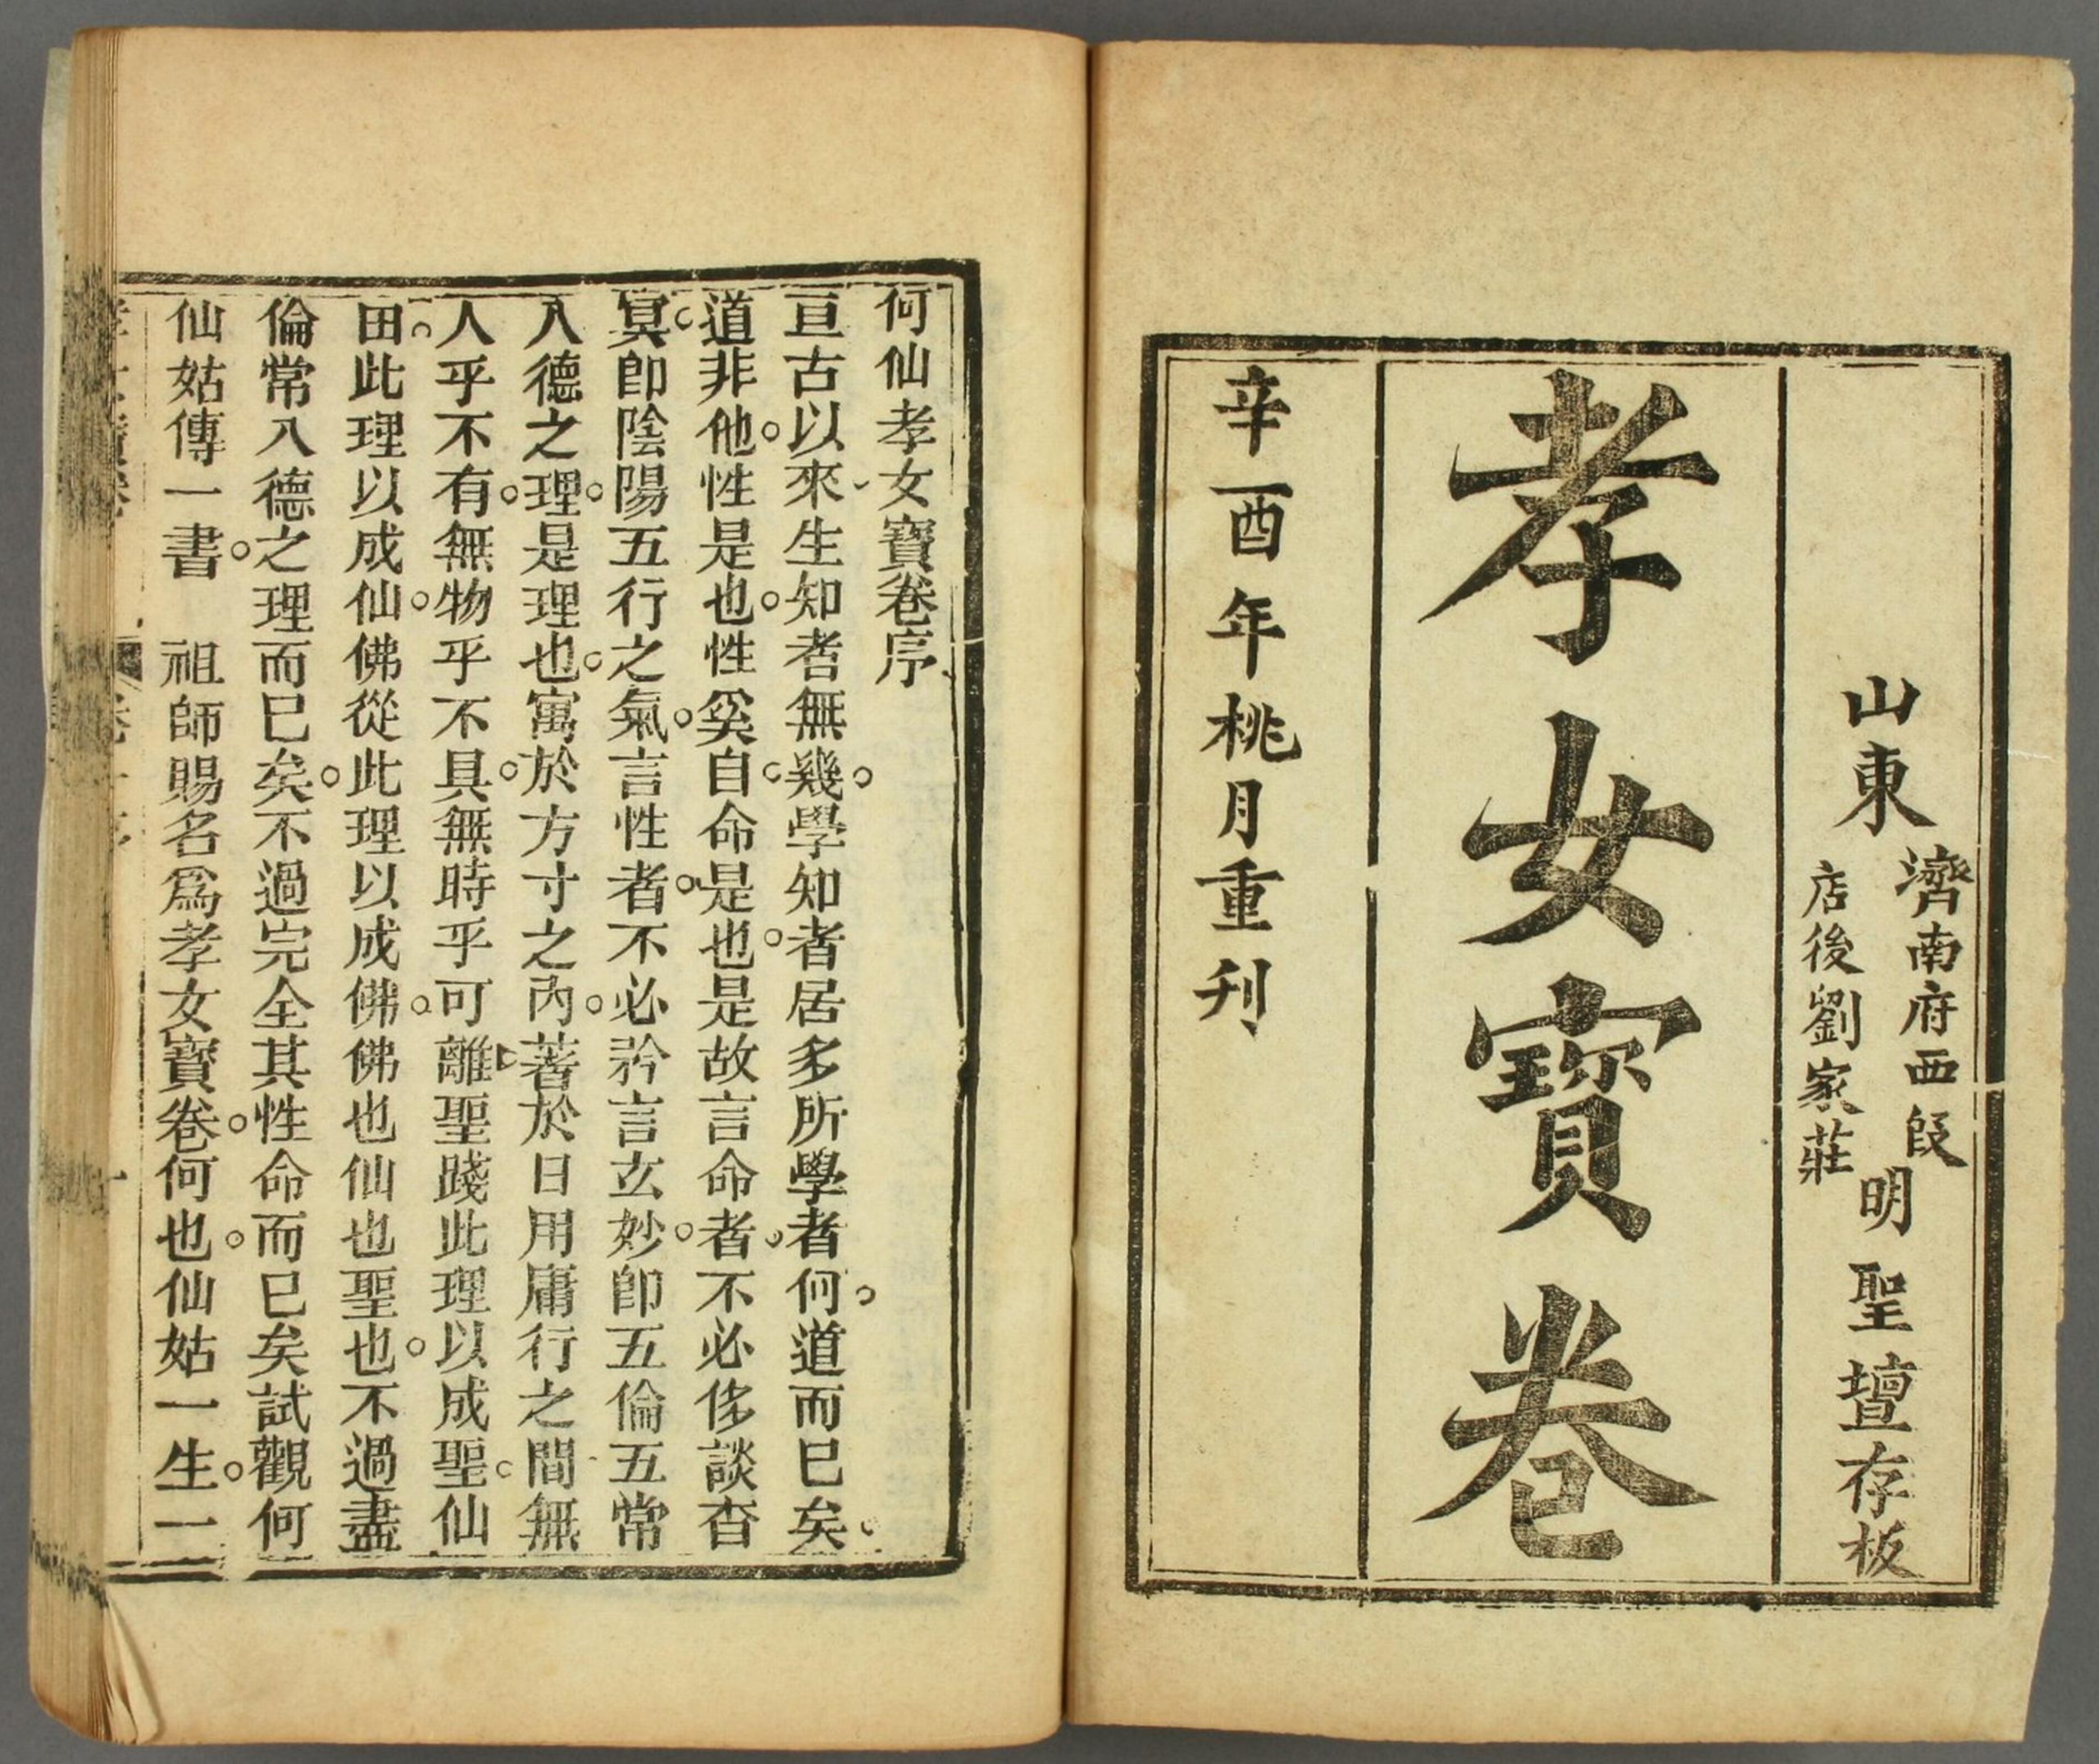 山東
濟南府西段
店後劉家莊
明聖壇存板
孝女寶卷
辛酉年桃月重刊
何仙孝女寶卷序
亘古以來生知者無幾學知者居多所學者何道而已矣
道非他性是也性奚自命是也是故言命者不必侈談杳
冥卽陰陽五行之氣言性者不必矜言玄妙卽五倫五常
八德之理是理也寓於方寸之內著於日用庸行之間無
人乎不有無物乎不具無時乎可離聖踐此理以成聖仙
由此理以成仙佛從此理以成佛佛也仙也聖也不過盡
倫常八德之理而已矣不過完全其性命而已矣試觀何
仙姑傳一書　祖師賜名爲孝女寶卷何也仙姑一生一